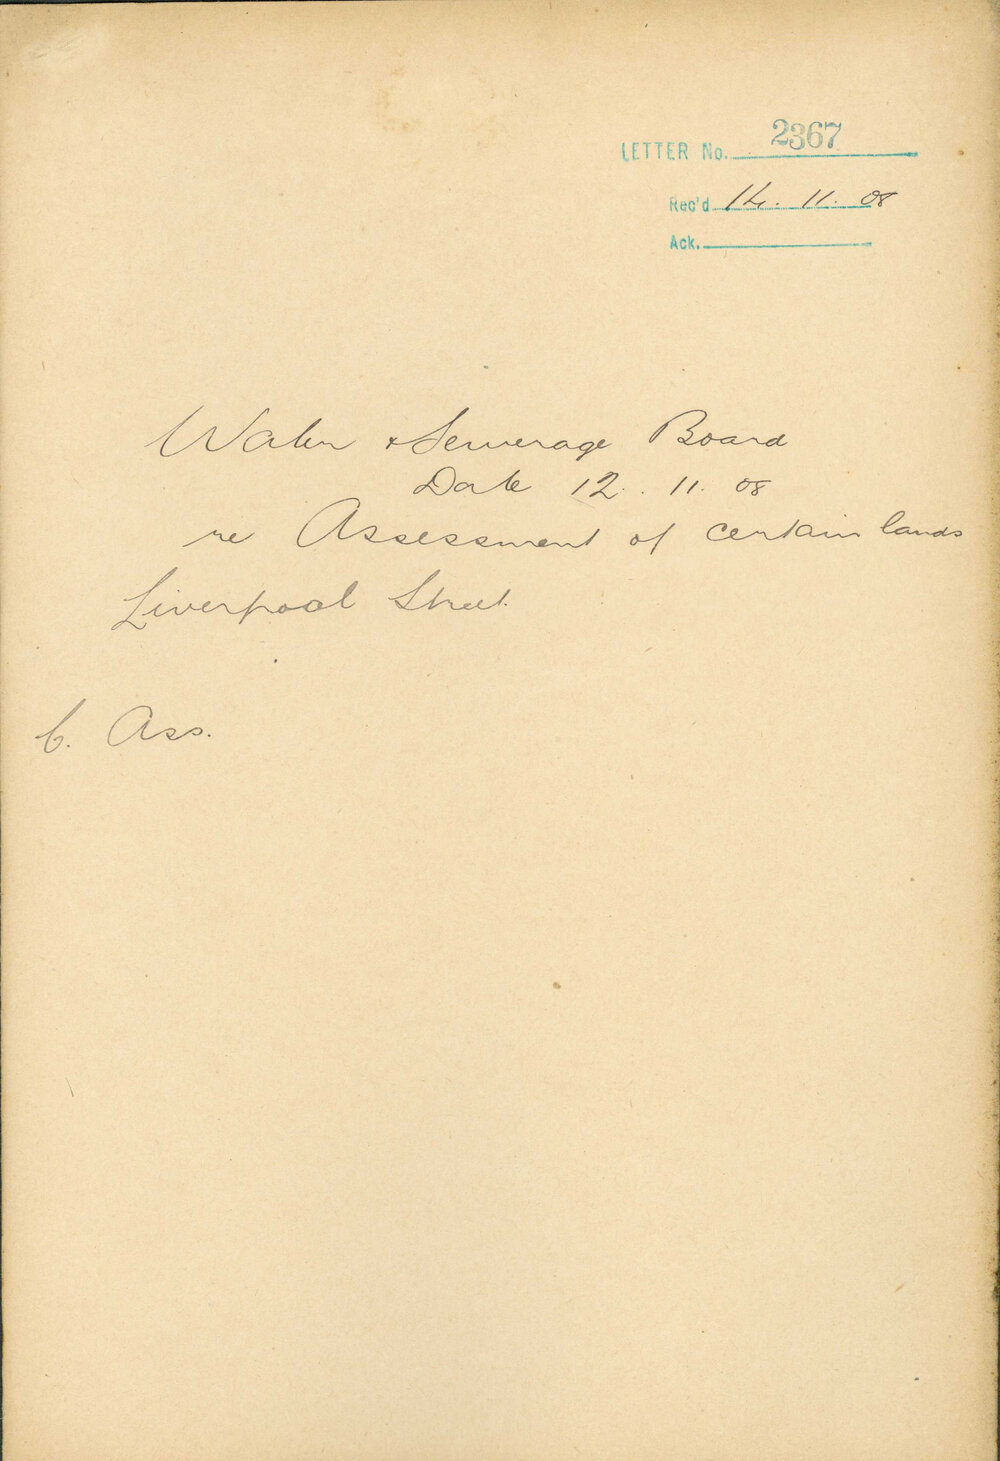 LETTER No. 2367
Rec'd 14. 11. 08
Ack.
Water & Sewerage Board
Date 12. 11. 08
re Assessment of certain lands
Liverpool Street.
C. Ass.